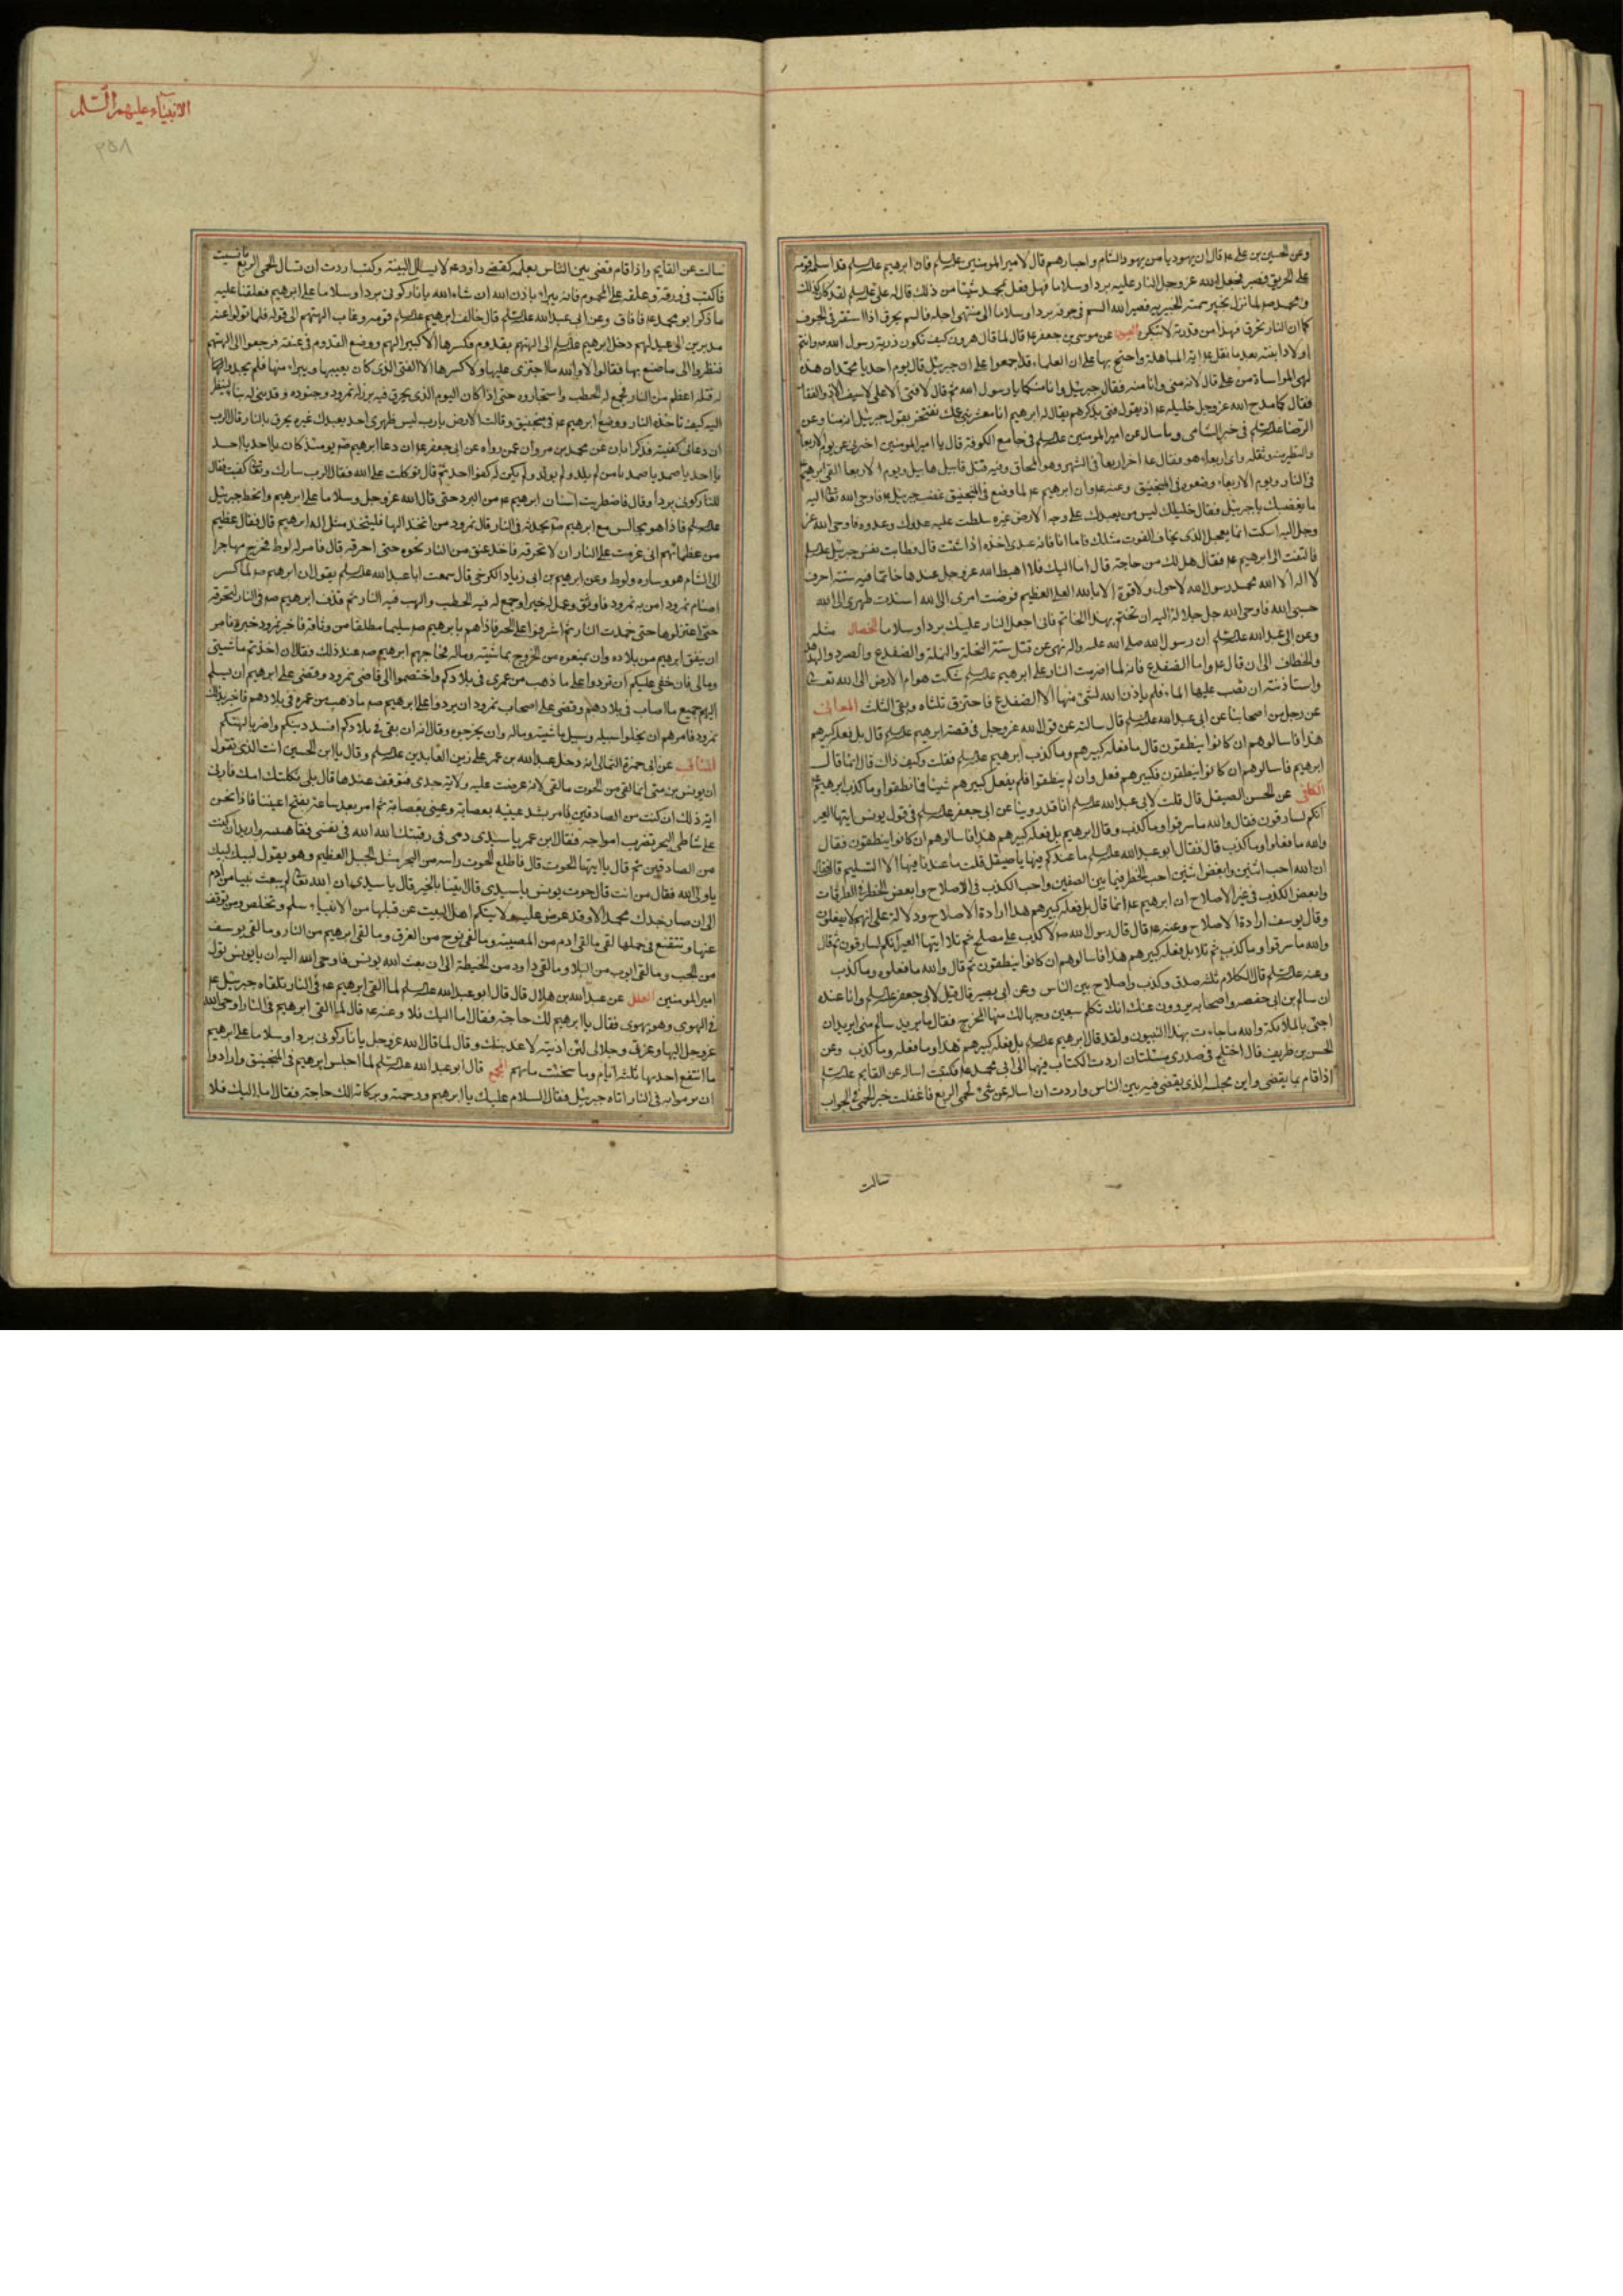 وعن الحسين بن علي عم قال ان يهوديا من يهود الشام واحبارهم قال لامير المومنين علیه السلم فان ابرهيم علیه السلم قد اسلمه قومه
على الحريق فصبر فجعل الله عز وجل النار عليه بردا وسلاما فهل فعل بمحمد شيئا من ذلك قال له على علیه السلم لقد كان كذلك
ومحمد صم لما نزل بخيبر سمته الخيبرية فصير الله السم في جوفه بردا وسلاما الى منتهى اجله فالسم يحرق اذا استقر في الجوف
كما ان النار تحرق فهذا من قدرته لا تنكره العيون عن موسى بن جعفر عم قال لما قال هرون كيف تكون ذرية رسول الله صم وانتم
اولاد ابنته بعد ما نقل عم اية المباهلة واحتج بها على ان العلماء قد اجمعوا على ان جبرئيل قال يوم احد يا محمد ان هذه
لهى المواساة من على قال لانه منى وانا منه فقال جبرئيل وانا منكما يا رسول الله ثم قال لا فتى الا على لا سيف الا ذو الفقار
فقال كما مدح الله عز وجل خليله عم اذ يقول فتى يذكرهم يقال له ابرهيم انا معشر بنى عمك نفتخر بقول جبرئيل انه منا وعن
الرضا علیه السلم في خبر الشامى وما سال عن امير المومنين علیه السلم في جامع الكوفة قال يا امير المومنين اخبرني عن يوم الاربعا
والتطير منه وثقله واى اربعاء هو فقال عم اخر اربعا في الشهر وهو المحاق وفيه قتل قابيل هابيل ويوم الاربعا القى ابرهيم
في النار ويوم الاربعاء وضعوه في المنجنيق وعنه عم وان ابرهيم عم لما وضع في المنجنيق غضب جبرئيل عم فاوحى الله تعالى اليه
ما يغضبك يا جبرئيل فقال خليلك ليس من يعبدك على وجه الارض غيره سلطت عليه عدوك وعدوه فاوحى الله عز
وجل اليه اسكت انما يعجل الذى يخاف الفوت مثلك فاما انا فانه عبدى اخذه اذا شئت قال فطابت نفس جبرئيل علیه السلم
فالتفت الى ابرهيم عم فقال هل لك من حاجة قال اما اليك فلا اهبط الله عز وجل عندها خاتما فيه ستة احرف
لا اله الا الله محمد رسول الله لا حول ولا قوة الا بالله العلى العظيم فوضت امرى الى الله اسندت ظهرى الى الله
حسبى الله فاوحى الله جل جلاله اليه ان تختم بهذا الخاتم فانى اجعل النار عليك بردا وسلاما الخصال مثله
وعن ابى عبد الله علیه السلم ان رسول الله صلى الله عليه واله نهى عن قتل ستة النحلة والنملة والضفدع والصرد والهدهد
والخطاف الى ان قال عم واما الضفدع فانه لما اضرمت النار على ابرهيم علیه السلم شكت هوام الارض الى الله تعالى
واستاذنته ان تصب عليها الماء فلم ياذن الله لشئ منها الا الضفدع فاحترق ثلثاه وبقى الثلث المعانى
عن رجل من اصحابنا عن ابى عبد الله علیه السلم قال سالته عن قول الله عز وجل في قصة ابرهيم علیه السلم قال بل فعله كبيرهم
هذا فاسالوهم ان كانوا ينطقون قال ما فعله كبيرهم وما كذب ابرهيم علیه السلم فقلت وكيف ذاك قال انما قال
ابرهيم فاسالوهم ان كانوا ينطقون فكبيرهم فعل وان لم ينطقوا فلم يفعل كبيرهم شيئا فما نطقوا وما كذب ابرهيم عم
الكافى عن الحسن الصيقل قال قلت لابى عبد الله علیه السلم انا قد روينا عن ابى جعفر علیه السلم في قول يوسف ايتها العير
انكم لسارقون فقال والله ما سرقوا وما كذب وقال ابرهيم بل فعله كبيرهم هذا فاسالوهم ان كانوا ينطقون فقال
والله ما فعلوا وما كذب قال فقال ابو عبد الله علیه السلم ما عندكم فيها يا صيقل قلت ما عندنا فيها الا التسليم قال فقال
ان الله احب اثنين وابغض اثنين احب الخطر فيما بين الصفين واحب الكذب في الاصلاح وابغض الخطر في الطرقات
وابغض الكذب في غير الاصلاح ان ابرهيم عم انما قال بل فعله كبيرهم هذا ارادة الاصلاح ودلالة على انهم لا يفعلون
وقال يوسف ارادة الاصلاح وعنه عم قال قال رسول الله صم لا كذب على مصلح ثم تلا ايتها العير انكم لسارقون ثم قال
والله ما سرقوا وما كذب ثم تلا بل فعله كبيرهم هذا فاسالوهم ان كانوا ينطقون ثم قال والله ما فعلوه وما كذب
وعنه علیه السلم قال الكلام ثلثة صدق وكذب واصلاح بين الناس وعن ابى بصير قال قيل لابى جعفر علیه السلم وانا عنده
ان سالم بن ابى حفصة واصحابه يروون عنك انك تكلم سبعين وجها لك منها المخرج فقال ما يريد سالم منى ايريد ان
اجئ بالملائكة والله ما جاءت بهذا النبيون ولقد قال ابرهيم علیه السلم بل فعله كبيرهم هذا وما فعله وما كذب وعن
الحسن بن ظريف قال اختلج في صدرى مسئلتان اردت الكتاب فيهما الى ابى محمد عم فكتبت اساله عن القايم علیه السلم
اذا قام بما يقضى واين مجلسه الذى يقضى فيه بين الناس واردت ان اساله عن شئ لحمى الربع فاغفلت خبر الحمى فجاء الجواب
سالت
الانبياء عليهم السلم
٣٥٨
سالت عن القايم واذا قام قضى بين الناس بعلمه كقضى داود عم لا يسال البينة وكنت اردت ان تسال لحمى الربع فانسيت
فاكتب في ورقة وعلقه على المحموم فانه يبراء باذن الله ان شاء الله يا نار كونى بردا وسلاما على ابرهيم فعلقنا عليه
ما ذكر ابو محمد عم فافاق وعن ابى عبد الله علیه السلم قال خالف ابرهيم علیه السلم قومه وعاب الهتهم الى قوله فلما تولوا عنه
مدبرين الى عيد لهم دخل ابرهيم علیه السلم الى الهتهم بقدوم فكسرها الا كبيرا لهم ووضع القدوم في عنقه فرجعوا الى الهتهم
فنظروا الى ما صنع بها فقالوا لا والله ما اجترى عليها ولا كسرها الا الفتى الذى كان يعيبها ويبراء منها فلم يجدوا له
قتلة اعظم من النار فجمع له الحطب واستجادوه حتى اذا كان اليوم الذى يحرق فيه برز له نمرود وجنوده وقد بنى له بناء لينظر
اليه كيف تاخذه النار ووضع ابرهيم عم في منجنيق وقالت الارض يا رب ليس على ظهرى احد يعبدك غيره يحرق بالنار قال الرب
ان دعانى كفيته فذكر ابان عن محمد بن مروان عمن رواه عن ابى جعفر عم ان دعا ابرهيم صم يومئذ كان يا احد يا احد
يا احد يا صمد يا صمد يا من لم يلد ولم يولد ولم يكن له كفوا احد ثم قال توكلت على الله فقال الرب تبارك وتعالى كفيت فقال
للنار كونى بردا وقال فاضطربت اسنان ابرهيم عم من البرد حتى قال الله عز وجل وسلاما على ابرهيم وانحط جبرئيل
علیه السلم فاذا هو يجالس مع ابرهيم صم يحدثه في النار قال نمرود من اتخذ الها فليتخذ مثل اله ابرهيم قال فقال عظيم
من عظمائهم انى عزمت على النار ان لا تحرقه فاخذ عنق من النار نحوه حتى احرقه قال فامن له لوط فخرج مهاجرا
الى الشام هو وساره ولوط وعن ابرهيم بن ابى زياد الكرخى قال سمعت ابا عبد الله علیه السلم يقول ان ابرهيم صم لما كسر
اصنام نمرود امر به نمرود فاوثق وعمل له حيرا وجمع له فيه الحطب والهب فيه النار ثم قذف ابرهيم صم في النار لتحرقه
حتى اعتزلوها حتى خمدت النار ثم اشرفوا على الحير فاذا هم بابرهيم صم سليما مطلقا من وثاقه فاخبر نمرود خبره فامر
ان ينفى ابرهيم من بلاده وان يمنعوه من الخروج بماشيته وماله فحاجهم ابرهيم صم عند ذلك فقال ان اخذتم ماشيتى
ومالى فان حقى عليكم ان تردوا على ما ذهب من عمرى في بلادكم واختصموا الى قاضى نمرود وقضى على ابرهيم ان يسلم
اليهم جميع ما اصاب في بلادهم وقضى على اصحاب نمرود ان يردوا على ابرهيم صم ما ذهب من عمره في بلادهم فاخبر بذلك
نمرود فامرهم ان يخلوا سبيله وسبيل ماشيته وماله وان يخرجوه وقال انه ان بقى في بلادكم افسد دينكم واضر بالهتكم
المناقب عن ابى حمزة الثمالى انه دخل عبد الله بن عمر على زين العابدين علیه السلم وقال يا ابن الحسين انت الذى تقول
ان يونس بن متى انما لقى من الحوت ما لقى لانه عرضت عليه ولاية جدى فتوقف عندها قال بلى ثكلتك امك قال فارنى
اية ذلك ان كنت من الصادقين فامر بشد عينيه بعصابة وعينى بعصابة ثم امر بعد ساعة بفتح اعيننا فاذا نحن
على شاطى البحر تضرب امواجه فقال ابن عمر يا سيدى دمى في رقبتك الله الله في نفسى فقال هيه واريه ان كنت
من الصادقين ثم قال يا ايتها الحوت قال فاطلع الحوت راسه من البحر مثل الجبل العظيم وهو يقول لبيك لبيك
يا ولى الله فقال من انت قال حوت يونس يا سيدى قال انبئنا بالخبر قال يا سيدى ان الله تعالى لم يبعث نبيا من ادم
الى ان صار جدك محمد الا وقد عرض عليه ولايتكم اهل البيت فمن قبلها من الانبياء سلم وتخلص ومن توقف
عنها وتتعتع في حملها لقى ما لقى ادم من المصيبة وما لقى نوح من الغرق وما لقى ابرهيم من النار وما لقى يوسف
من الجب وما لقى ايوب من البلا وما لقى داود من الخطيئة الى ان بعث الله يونس فاوحى الله اليه ان يا يونس تول
امير المومنين العلل عن عبد الله بن هلال قال قال ابو عبد الله علیه السلم لما القى ابرهيم عم في النار تلقاه جبرئيل عم
في الهوى وهو يهوى فقال يا ابرهيم لك حاجة فقال اما اليك فلا وعنه عم قال لما القى ابرهيم في النار اوحى الله
عز وجل اليها وعزتى وجلالى لئن اذيته لاعذبنك وقال لما قال الله عز وجل يا نار كونى بردا وسلاما على ابرهيم
ما انتفع احد بها ثلثة ايام وما سخنت ماءهم المجمع قال ابو عبد الله علیه السلم لما اجلس ابرهيم في المنجنيق وارادوا
ان يرموا به في النار اتاه جبرئيل فقال السلام عليك يا ابرهيم ورحمة وبركاته الك حاجة فقال اما اليك فلا